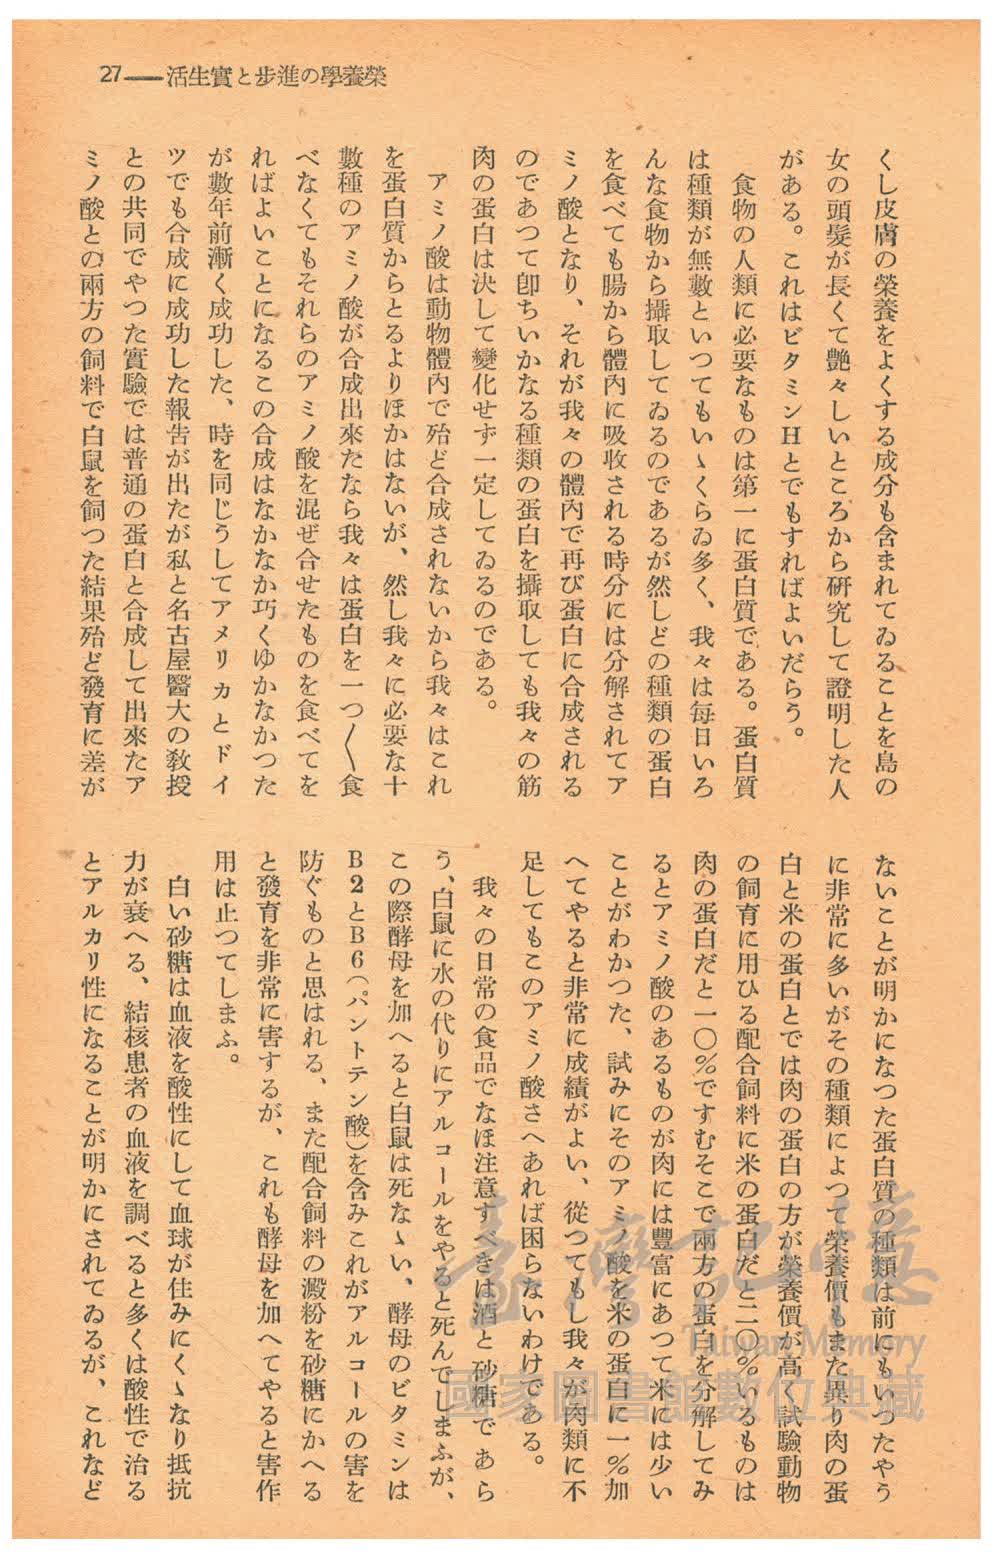 27――活生實と步進の學養榮
くし皮膚の榮養をよくする成分も含まれてゐることを島の
女の頭髮が長くて艶々しいところから硏究して證明した人
がある。これはビタミンHとでもすればよいだらう。
食物の人類に必要なものは第一に蛋白質である。蛋白質
は種類が無數といつてもいゝくらゐ多く、我々は每日いろ
んな食物から攝取してゐるのであるが然しどの種類の蛋白
を食べても腸から體內に吸收される時分には分解されてア
ミノ酸となり、それが我々の體內で再び蛋白に合成される
のであつて卽ちいかなる種類の蛋白を攝取しても我々の筋
肉の蛋白は決して變化せず一定してゐるのである。
アミノ酸は動物體內で殆ど合成されないから我々はこれ
を蛋白質からとるよりほかはないが、然し我々に必要な十
數種のアミノ酸が合成出來たなら我々は蛋白を一つ〱食
べなくてもそれらのアミノ酸を混ぜ合せたものを食べてを
ればよいことになるこの合成はなかなか巧くゆかなかつた
が數年前漸く成功した、時を同じうしてアメリカとドイ
ツでも合成に成功した報吿が出たが私と名古屋醫大の敎授
との共同でやつた實驗では普通の蛋白と合成して出來たア
ミノ酸との兩方の飼料で白鼠を飼つた結果殆ど發育に差が
ないことが明かになつた蛋白質の種類は前にもいつたやう
に非常に多いがその種類によつて榮養價もまた異り肉の蛋
白と米の蛋白とでは肉の蛋白の方が榮養價が高く試驗動物
の飼育に用ひる配合飼料に米の蛋白だと二〇%いるものは
肉の蛋白だと一〇%ですむそこで兩方の蛋白を分解してみ
るとアミノ酸のあるものが肉には豐富にあつて米には少い
ことがわかつた、試みにそのアミノ酸を米の蛋白に一%加
へてやると非常に成績がよい、從つてもし我々が肉類に不
足してもこのアミノ酸さへあれば困らないわけである。
我々の日常の食品でなほ注意すべきは酒と砂糖であら
う、白鼠に水の代りにアルコールをやると死んでしまふが、
この際酵母を加へると白鼠は死なゝい、酵母のビタミンは
B2とB6(パントテン酸)を含みこれがアルコールの害を
防ぐものと思はれる、また配合飼料の澱粉を砂糖にかへる
と發育を非常に害するが、これも酵母を加へてやると害作
用は止つてしまふ。
白い砂糖は血液を酸性にして血球が住みにくゝなり抵抗
力が衰へる、結核患者の血液を調べると多くは酸性で治る
とアルカリ性になることが明かにされてゐるが、これなど
臺灣記憶
Taiwan Memory
國家圖書館數位典藏